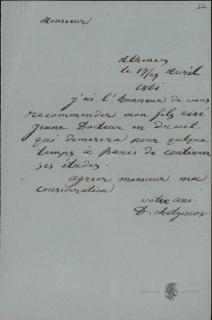 Monsieur
Athenes
le 17/29 Avril
1861
j'ai l'honneur de vous
recommander mon fils
jeune Docteur en Droit
qui demerera pour quelque
temps à Paris de continuer
ses études.
agreer monsieur ma
consideration
votre ami
D.